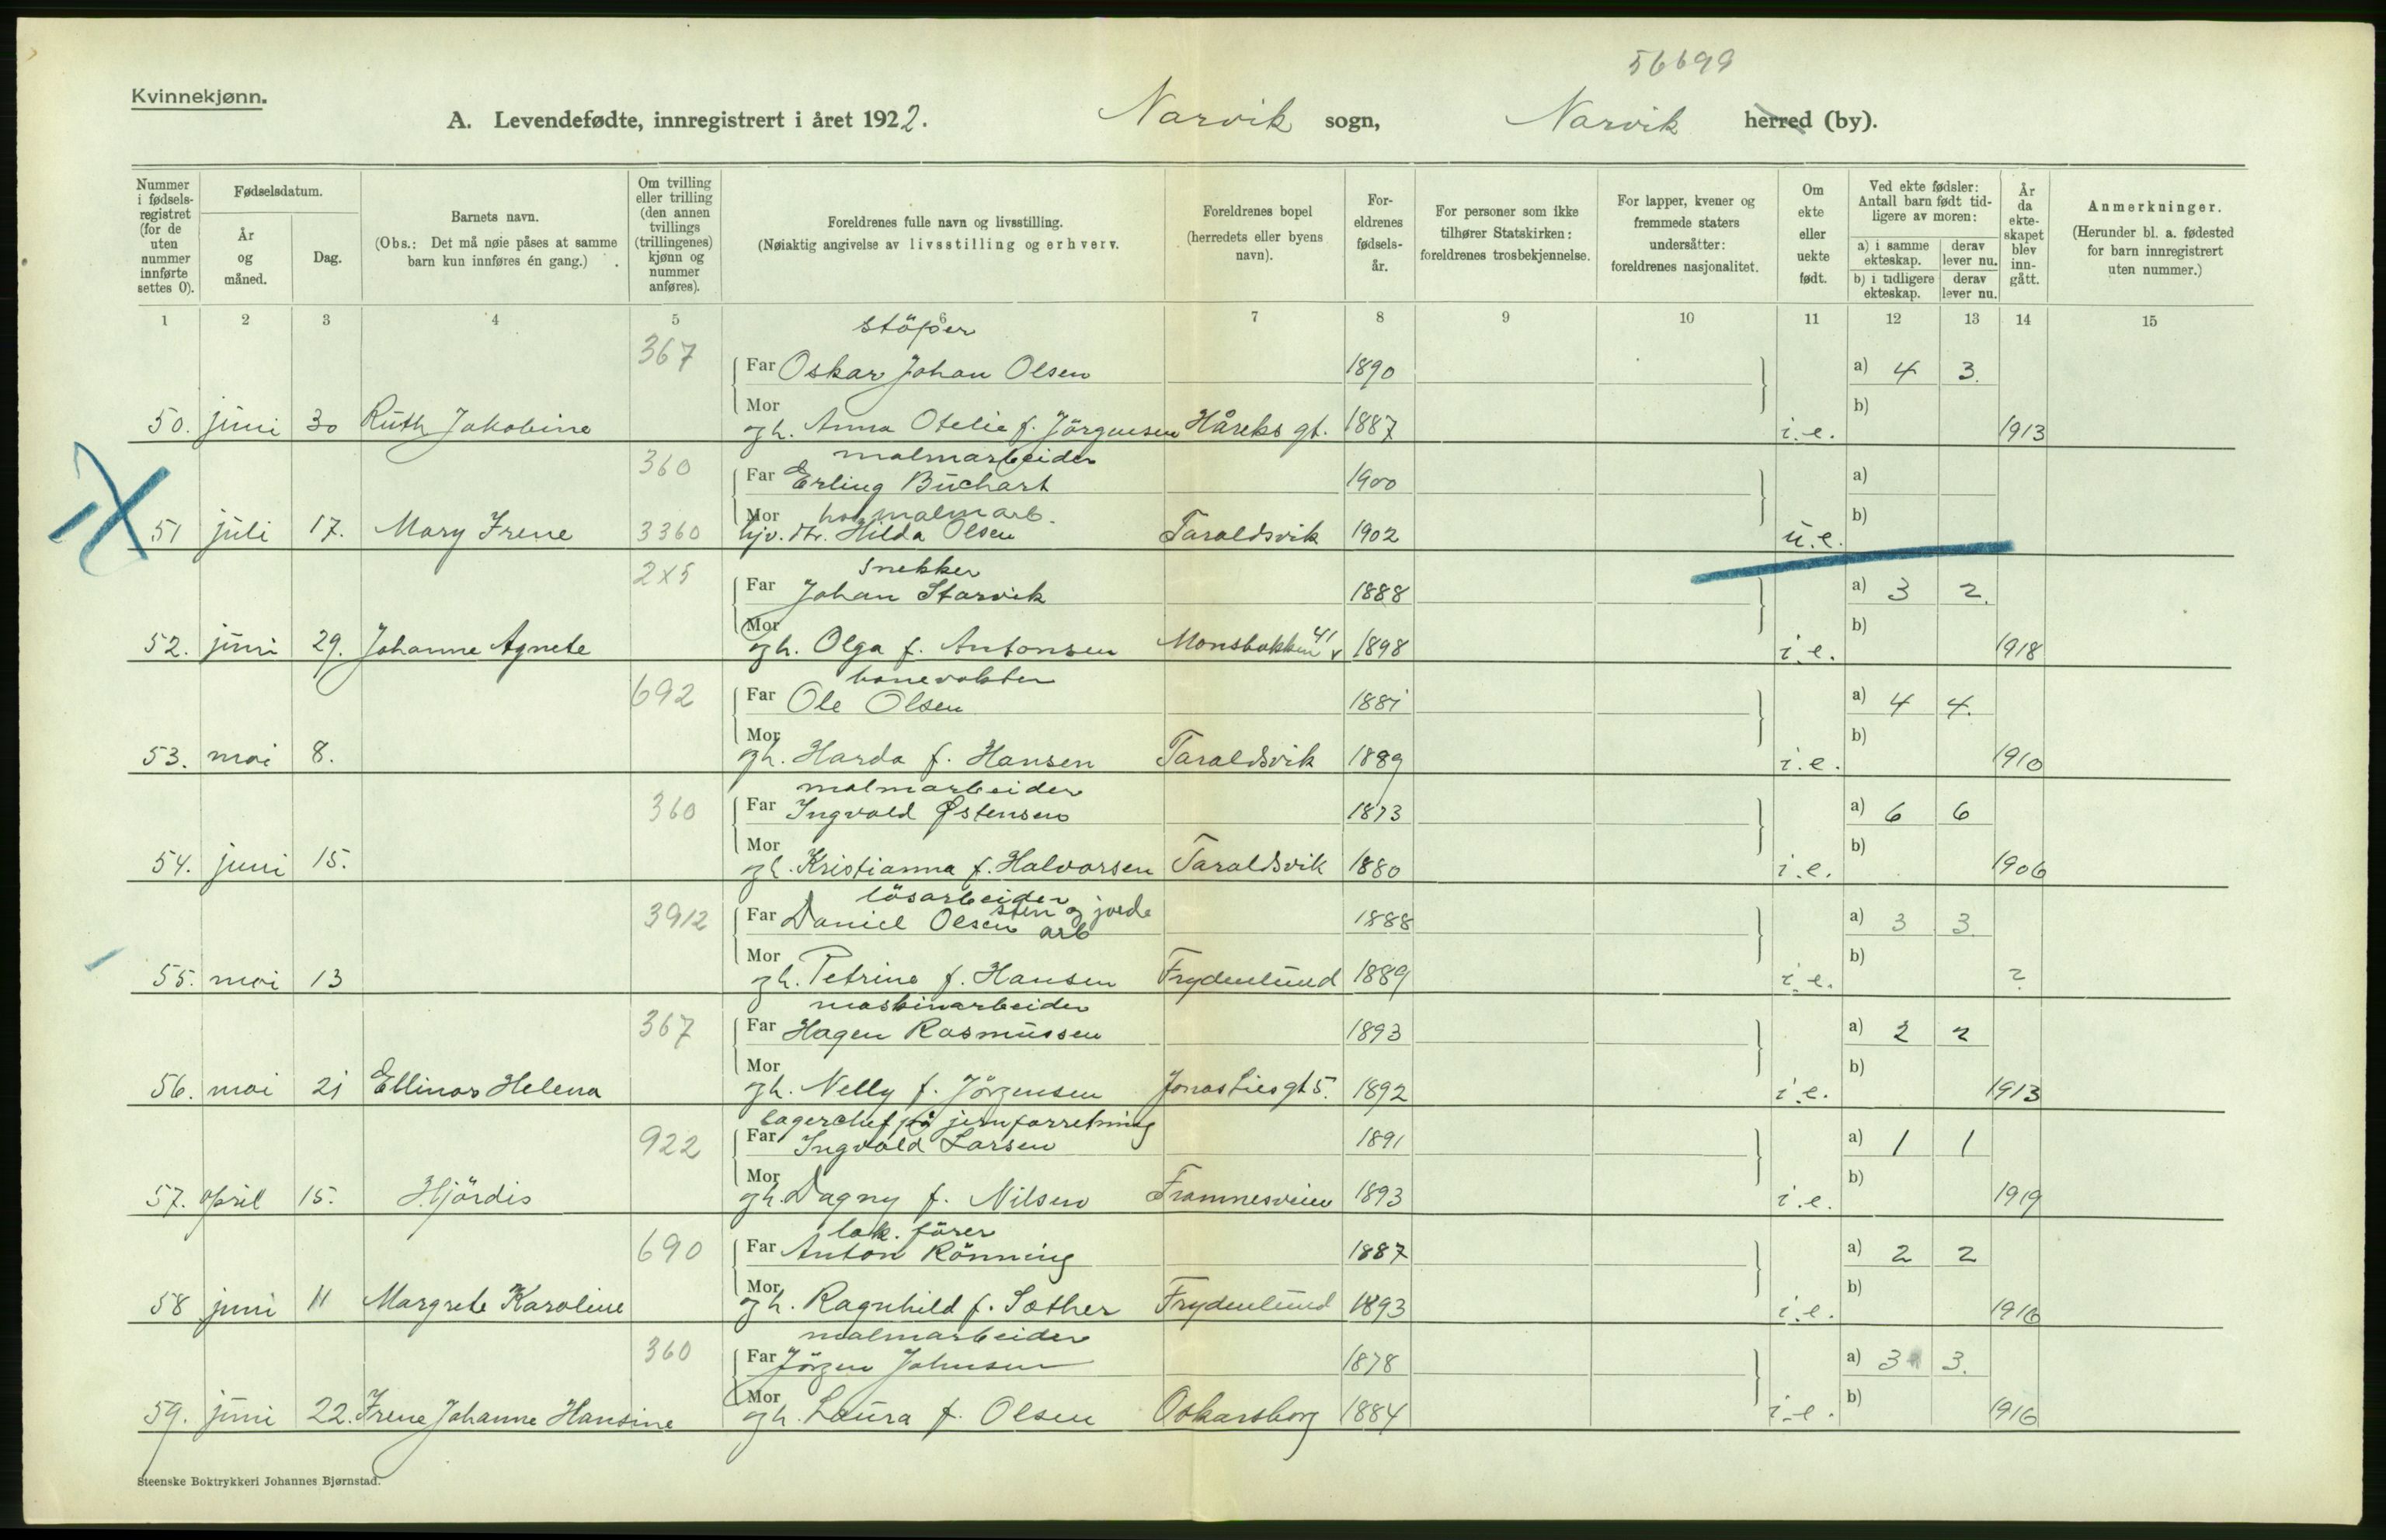 56699
Kvinnekjønn.
A. Levendefødte, innregistrert i året 1922. Narvik sogn, Narvik herred (by).
Nummer i fødselsregistret (for de uten nummer innførte settes 0).
Fødselsdatum.
År og måned.
Dag.
Barnets navn.
(Obs.: Det må nøie påses at samme barn kun innføres én gang.)
Om tvilling eller trilling (den annen tvillings (trillingenes) kjønn og nummer anføres).
Foreldrenes fulle navn og livsstilling.
(Nøiaktig angivelse av livsstilling og erhverv.
Foreldrenes bopel (herredets eller byens navn).
Foreldrenes fødselsår.
For personer som ikke tilhører Statskirken: foreldrenes trosbekjennelse.
For lapper, kvener og fremmede staters undersåtter: foreldrenes nasjonalitet.
Om ekte eller uekte født.
Ved ekte fødsler: Antall barn født tidligere av moren:
a) i samme ekteskap. derav lever nu.
b) i tidligere ekteskap. derav lever nu.
År da ekteskapet blev inngått.
Anmerkninger.
(Herunder bl. a. fødested for barn innregistrert uten nummer.)
1 2 3 4 5 6 7 8 9 10 11 12 13 14 15
støper
367 Far Oskar Johan Olsen 1890 a) 4 3.
Mor b)
50. juni 30 Ruth Jakobine gh. Anna Otelie f. Jörgensen Håreks gt. 1887 i.e. 1913
malmarbeider
360 Far Erling Buchart 1900 a)
Mor hos malmarb. b)
51 juli 17. Mary Irene 3360 hjv. dtr. Hilda Olsen Taraldsvik 1902 u.e.
snekker
2x5 Far Johan Starvik 1888 a) 3 2.
Mor b)
52. juni 29. Johanne Agnete gh. Olga f. Antonsen Monsbakken 41 1898 i.e. 1918
banevokter
692 Far Ole Olsen 1881 a) 4 4.
Mor b)
53. mai 8. gh. Harda f. Hansen Taraldsvik 1889 i.e. 1910
malmarbeider
360 Far Ingvald Østensen 1873 a) 6 6
Mor b)
54. juni 15. gh. Kristianna f. Halvorsen Taraldsvik 1880 i.e. 1906
lösarbeider
3912 Far Daniel Olsen sten og jorde arb 1888 a) 3 3.
Mor b)
55. mai 13 gh. Petrine f. Hansen Frydenlund 1889 i.e. ?
maskinarbeider
367 Far Hagen Rasmussen 1893 a) 2 2
Mor b)
56. mai 21 Ellinor Helena gh. Nelly f. Jörgensen Jonas Lies gt 5. 1892 i.e. 1913
lagerchef på jernforretning
922 Far Ingvald Larsen 1891 a) 1 1
Mor b)
57. april 15. Hjördis gh. Dagny f. Nilsen Framnesveien 1893 i.e. 1919
lok. förer
690 Far Anton Rönning 1887 a) 2 2
Mor b)
58 juni 11 Margrete Karoline gh. Ragnhild f. Sæther Frydenlund 1893 i.e. 1916
malmarbeider
360 Far Jörgen Johnsen 1878 a) 3 3.
Mor b)
59. juni 22. Irene Johanne Hansine gh. Laura f. Olsen Oskarsborg 1884 i.e. 1916
Steenske Boktrykkeri Johannes Bjørnstad.